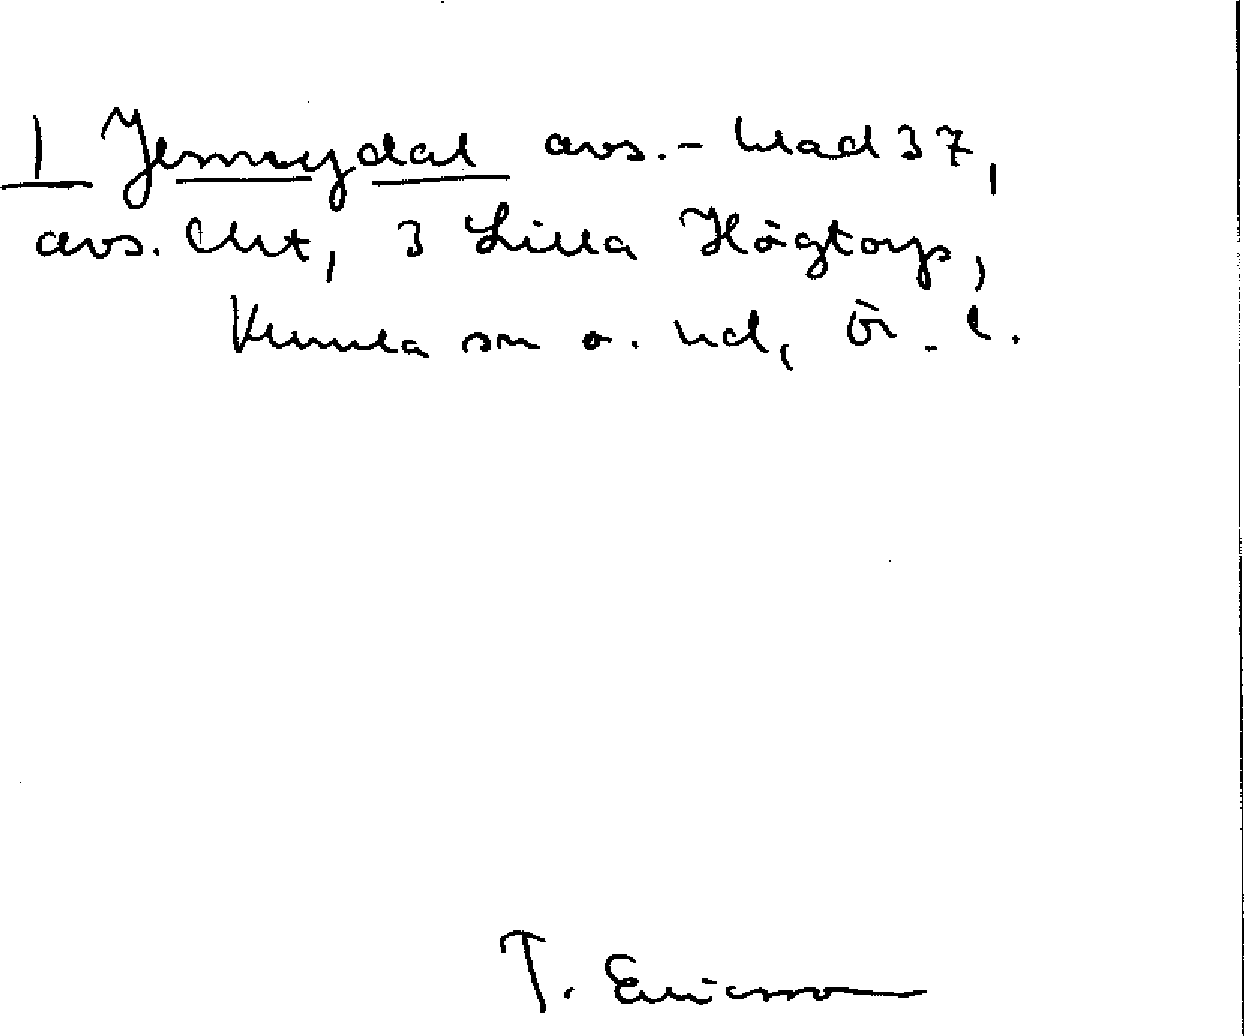 1 Jennydal avs. - blad 37,
avs. lht, 3 Lilla Högtorp,
Kumla sn o. hd, Ör. l.
T. Ericsson